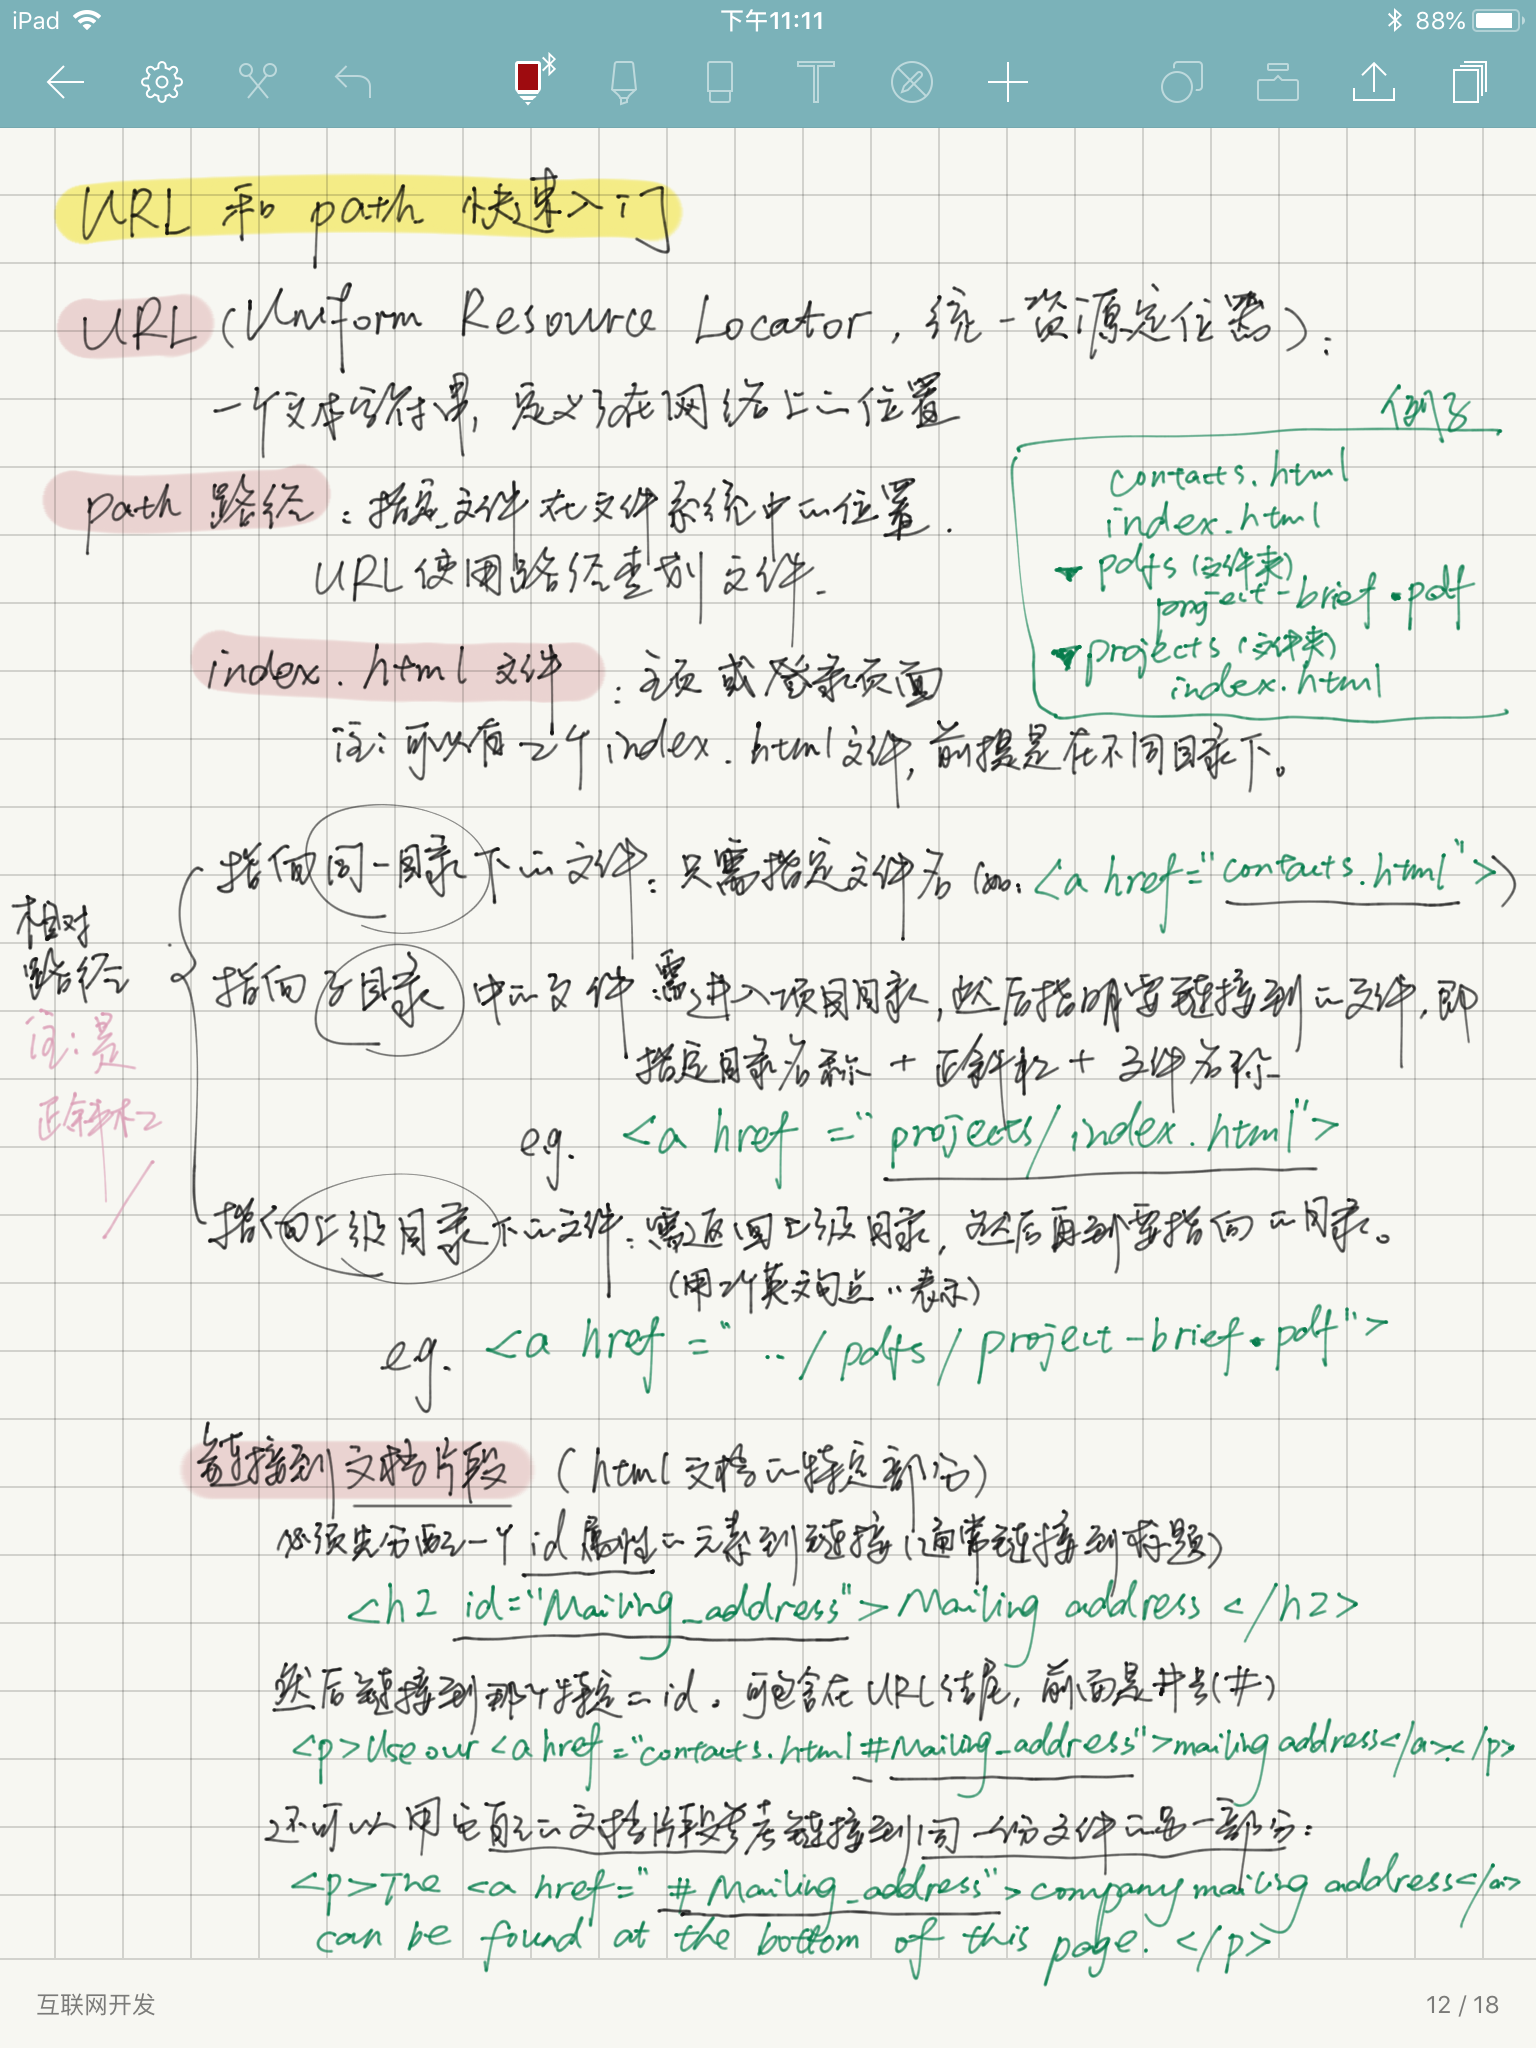 iPad
下午11:11
88%
URL 和 path 快速入门
URL (Uniform Resource Locator, 统一资源定位器):
一个文本字符串, 定义了在网络上的位置
path 路径: 指定文件在文件系统中的位置.
URL使用路径查找文件.
例子
contacts.html
index.html
▼ pdfs (文件夹)
project-brief.pdf
▼ projects (文件夹)
index.html
index.html 文件: 主页或登录页面
注: 可以有二个index.html文件, 前提是在不同目录下。
相对
路径
注: 是
正斜杠
/
指向同一目录下的文件: 只需指定文件名 (如: <a href="contacts.html">)
指向子目录中的文件: 需进入项目目录, 然后指明要链接到的文件, 即
指定目录名称 + 正斜杠 + 文件名称
e.g. <a href ="projects/index.html">
指向上级目录下的文件: 需返回上级目录, 然后再到要指向的目录。
(用2个英文句点 .. 表示)
e.g. <a href ="../pdfs/project-brief.pdf">
链接到文档片段 (html文档的特定部分)
必须先分配一个id属性的元素到链接 (通常链接到标题)
<h2 id="Mailing_address">Mailing address </h2>
然后链接到那个特定的id. 可包含在URL结尾, 前面是井号(#)
<p>Use our <a href="contacts.html#Mailing_address">mailing address</a>.</p>
还可以用它自己的文档片段参考链接到同一份文件的另一部分:
<p>The <a href="#Mailing_address">company mailing address</a>
can be found at the bottom of this page. </p>
互联网开发
12 / 18